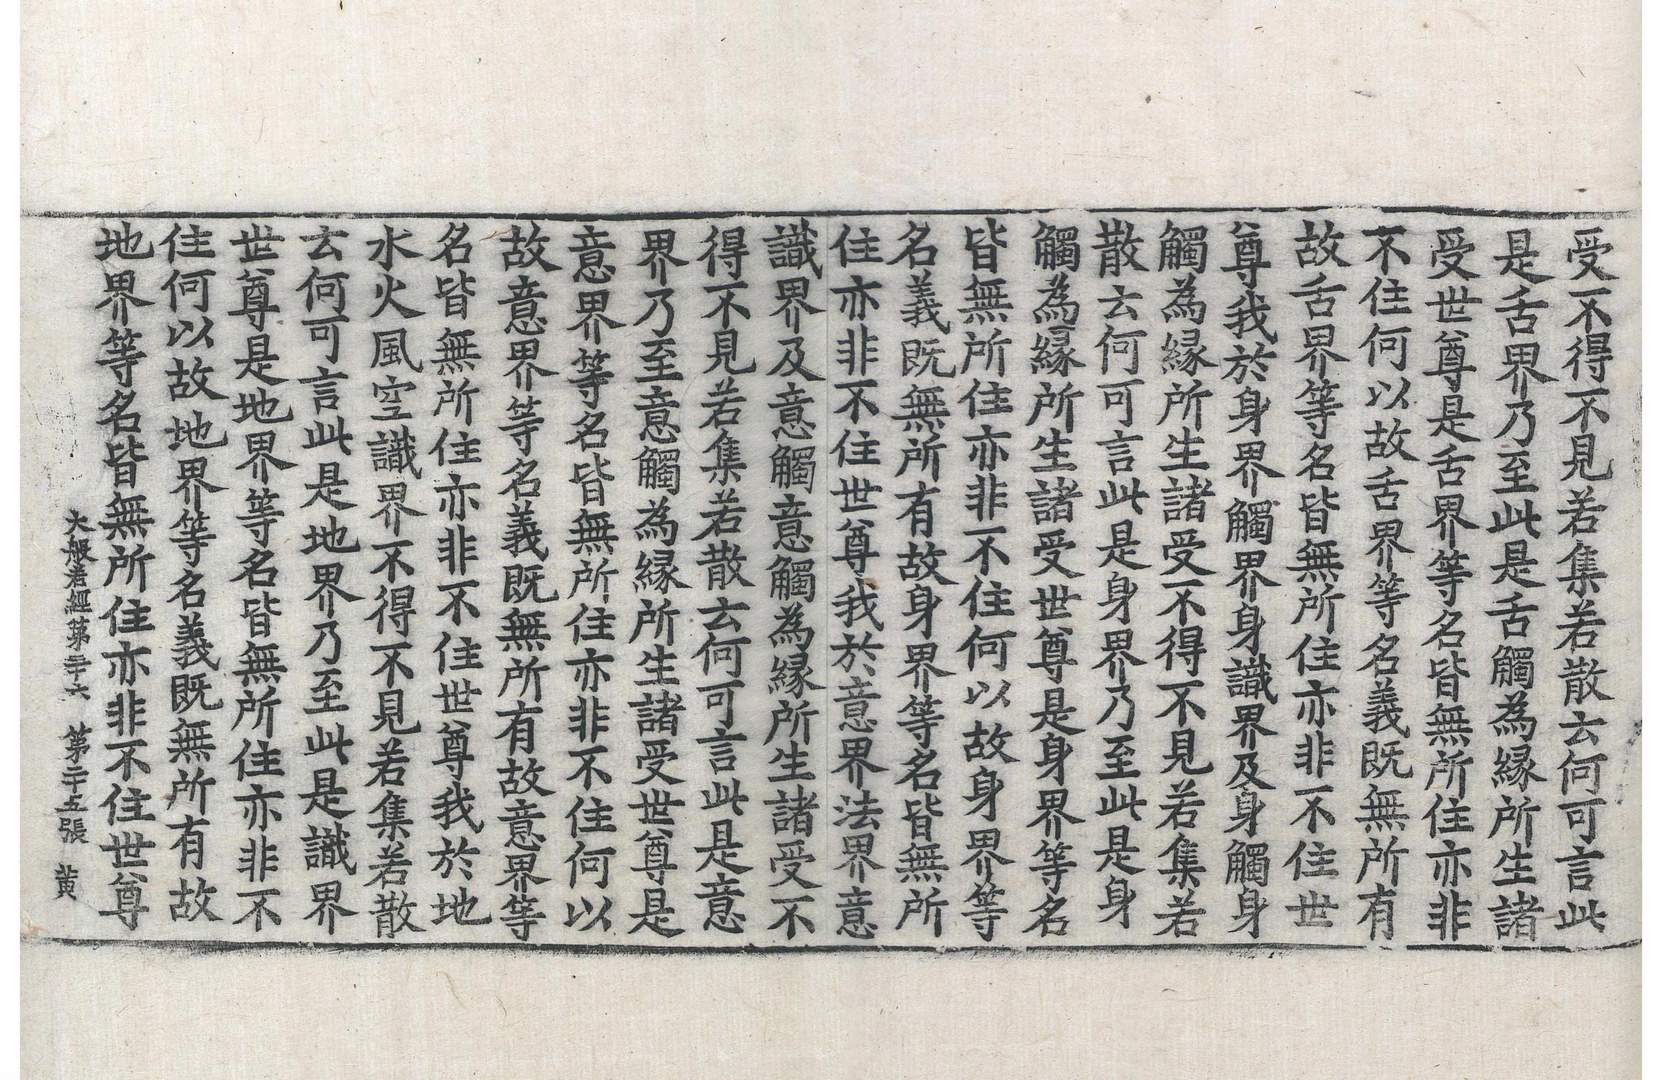 受不得不見若集若散云何可言此
是舌界乃至此是舌觸為縁所生諸
受世尊是舌界等名皆無所住亦非
不住何以故舌界等名義既無所有
故舌界等名皆無所住亦非不住世
尊我於身界觸界身識界及身觸身
觸為縁所生諸受不得不見若集若
散云何可言此是身界乃至此是身
觸為縁所生諸受世尊是身界等名
皆無所住亦非不住何以故身界等
名義既無所有故身界等名皆無所
住亦非不住世尊我於意界法界意
識界及意觸意觸為縁所生諸受不
得不見若集若散云何可言此是意
界乃至意觸為縁所生諸受世尊是
意界等名皆無所住亦非不住何以
故意界等名義既無所有故意界等
名皆無所住亦非不住世尊我於地
水火風空識界不得不見若集若散
云何可言此是地界乃至此是識界
世尊是地界等名皆無所住亦非不
住何以故地界等名義既無所有故
地界等名皆無所住亦非不住世尊
大般若經第三十六 第二十五張 黄